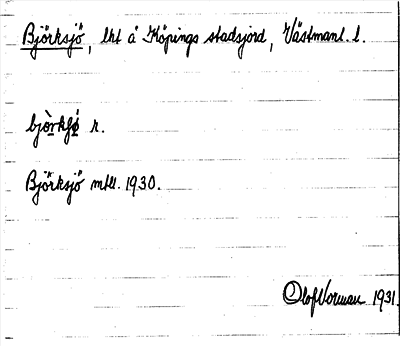 Björksjö, lht å Köpings stadsjord, Västmanl. l.
bjò̱rkʃǿ̱ n.
Björksjö mtll. 1930.
Olof Norman 1931.